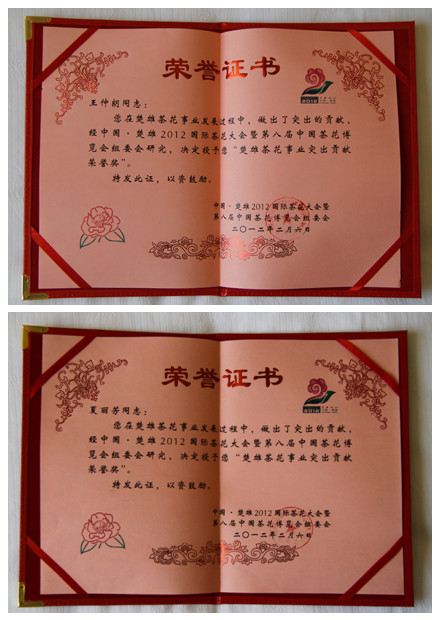 荣誉证书
2012
王仲朗同志：
您在楚雄茶花事业发展过程中，做出了突出的贡献，
经中国·楚雄2012国际茶花大会暨第八届中国茶花博
览会组委会研究，决定授予您“楚雄茶花事业突出贡献
荣誉奖”。
特发此证，以资鼓励。
中国·楚雄2012国际茶花大会暨
第八届中国茶花博览会组委会
二〇一二年二月六日
荣誉证书
2012
夏丽芳同志：
您在楚雄茶花事业发展过程中，做出了突出的贡献，
经中国·楚雄2012国际茶花大会暨第八届中国茶花博
览会组委会研究，决定授予您“楚雄茶花事业突出贡献
荣誉奖”。
特发此证，以资鼓励。
中国·楚雄2012国际茶花大会暨
第八届中国茶花博览会组委会
二〇一二年二月六日